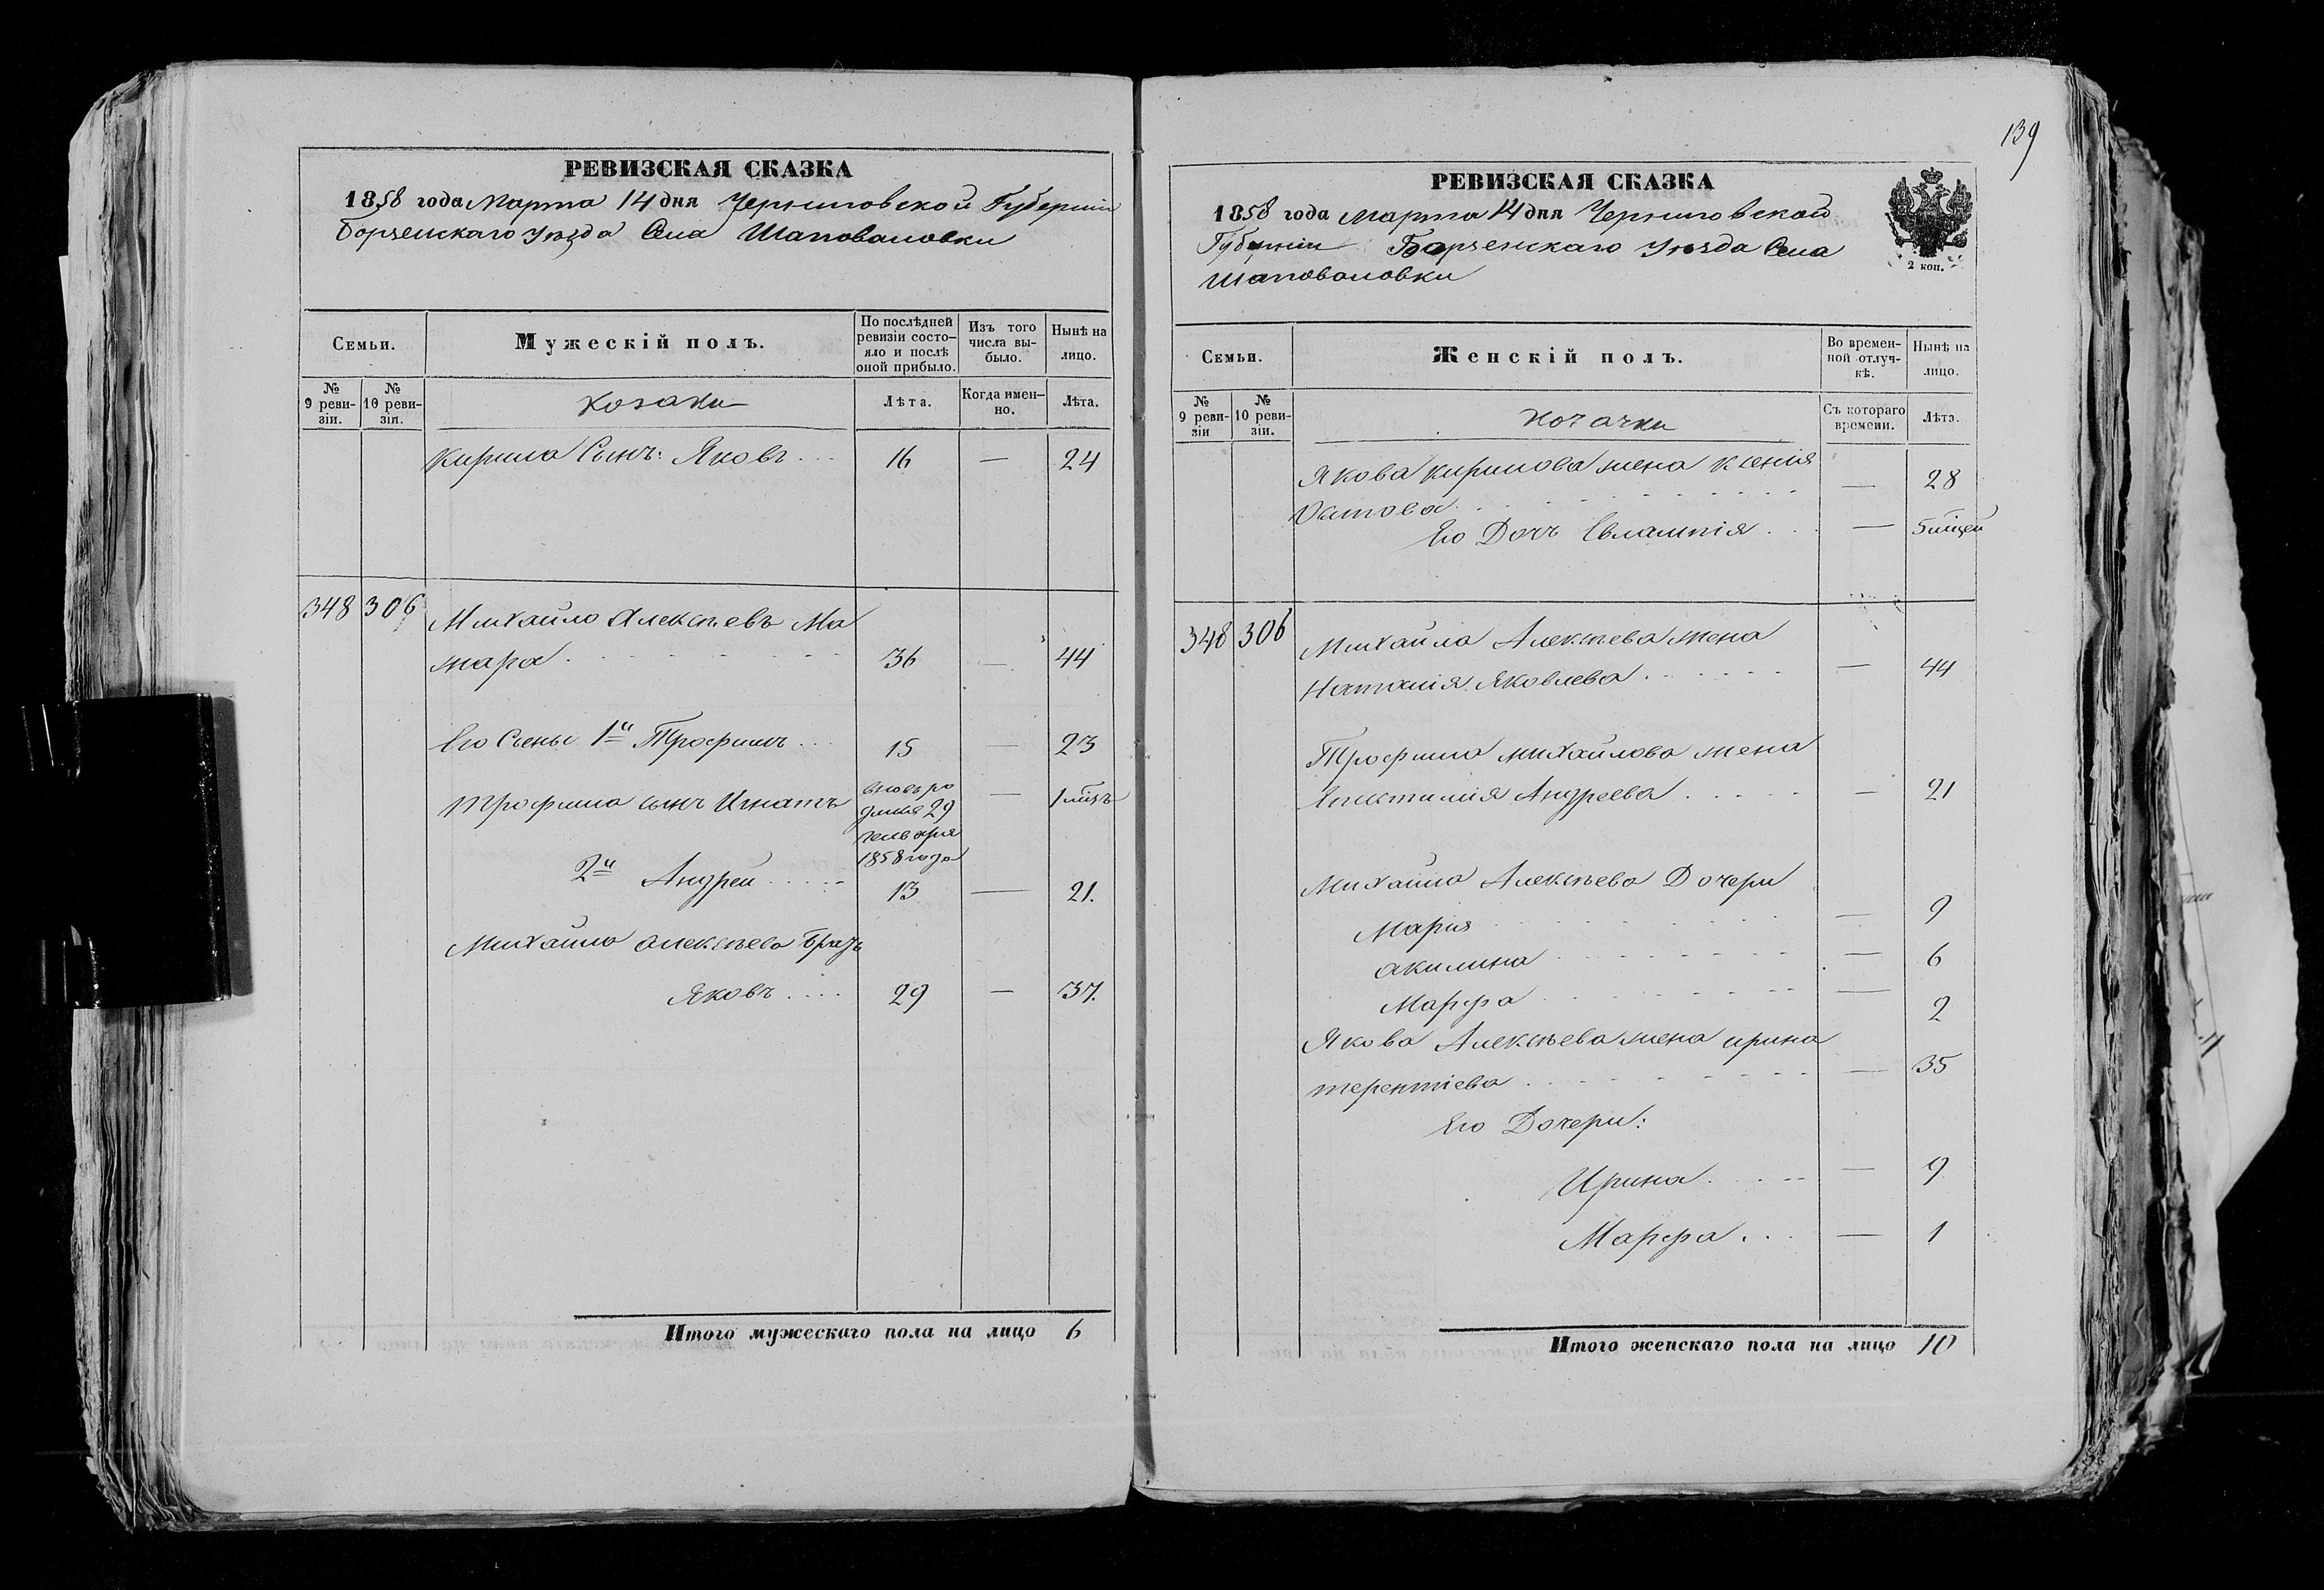 РЕВИЗСКАЯ СКАЗКА
1858 года Марта 14 дня Черниговской Губерніи
Борзенскаго Уѣзда Села Шаповаловки
Семьи.
Мужескій полъ.
По послѣдней ревизіи состо-
яло и послѣ
оной прибыло.
Изъ того
числа вы-
было.
Нынѣ на
лицо.
№
9 реви-
зіи.
№
10 реви-
зіи.
Козаки
Лѣта.
Когда имен-
но.
Лѣта.
Кирила Сынъ: Яковъ 16 — 24
348 306 Михайло Алексѣевъ Ма
мара 36 — 44
Его Сыны 1й Трофимъ 15 — 23
Трофима сынъ Игнатъ вновь ро — 1 мѣсъ
29
1858 года
2й Андрей 13 — 21.
Михайла Алексѣева Братъ
Яковъ 29 — 37.
Итого мужескаго пола на лицо 6
139
РЕВИЗСКАЯ СКАЗКА
1858 года Марта 14 дня Черниговской
Губерніи Борзенскаго Уѣзда Села
Шаповаловки
2 коп.
Семьи.
Женскій полъ.
Во времен-
ной отлуч-
кѣ.
Нынѣ на
лицо.
№
9 реви-
зіи
№
10 реви-
зіи.
Козачки
Съ котораго
времени.
Лѣта.
Якова Кирилова жена Ксенія
— 28
Его Дочь Евлампія — 5
348 306 Михайла Алексѣева жена
Наталія Яковлева — 44
Трофима Михайлова жена
Андреева — 21
Михайла Алексѣева Дочери
Марія — 9
Акилина — 6
Марфа — 2
Якова Алексѣева жена Ирина
Терентіева — 35
Его Дочери:
Ирина — 9
Марфа — 1
Итого женскаго пола на лицо 10